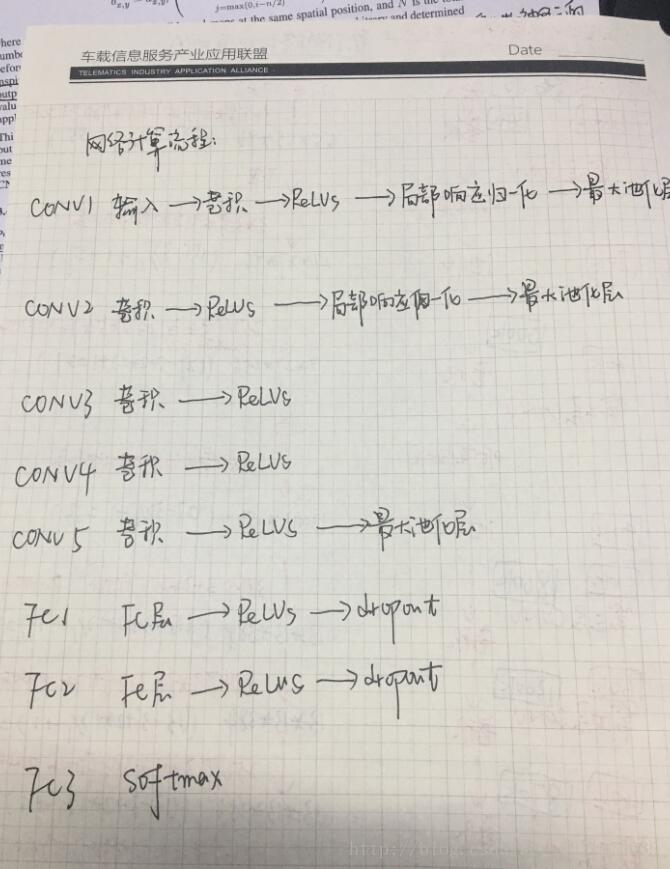 j=max(0,i-n/2)
at the same spatial position, and N is the
and determined
车载信息服务产业应用联盟 Date
TELEMATICS INDUSTRY APPLICATION ALLIANCE
网络计算流程:
CONV1 输入 → 卷积 → ReLUs → 局部响应归一化 → 最大池化层
CONV2 卷积 → ReLUs → 局部响应归一化 → 最大池化层
CONV3 卷积 → ReLUs
CONV4 卷积 → ReLUs
CONV5 卷积 → ReLUs → 最大池化层
FC1 FC层 → ReLUs → dropout
FC2 FC层 → ReLUs → dropout
FC3 softmax
http://blog.cs